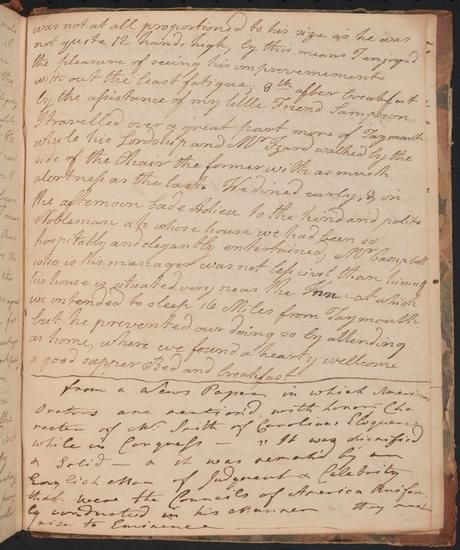 was not at all proportioned to his size as he was
not quite 12 hands high, by this means I enjoyed
the pleasure of seeing his improvements
without the least fatigue, 8th after breakfast
by the assistance of my little Friend Sampson
I travelled over a great part more of Taymouth
while his Lordship and Mr Izard walked by the
side of the Chair the former with as much
alertness as the last. We dined early, & in
the afternoon bade Adieu to the kind and polite
Nobleman at whose house we had been so
hospitably and elegantly entertained, Mr Campbell
who is his manager was not less civil than himself
his house is situated very near the Inn at which
we intended to sleep 16 Miles from Taymouth
but he prevented our doing so by attending
us home, where we found a hearty wellcome
a good supper Bed and breakfast
from a News Paper in which American
Orators are mentiond with honor Cha
racter of Mr Smith of Carolinas Eloquence
while in Congress — "It was dignified
& Solid — & it was remarkd by an
English Man of Judgment & Celebrity
that were the Councils of America Unifor
ly conducted in his Manner they must
rise to Eminence